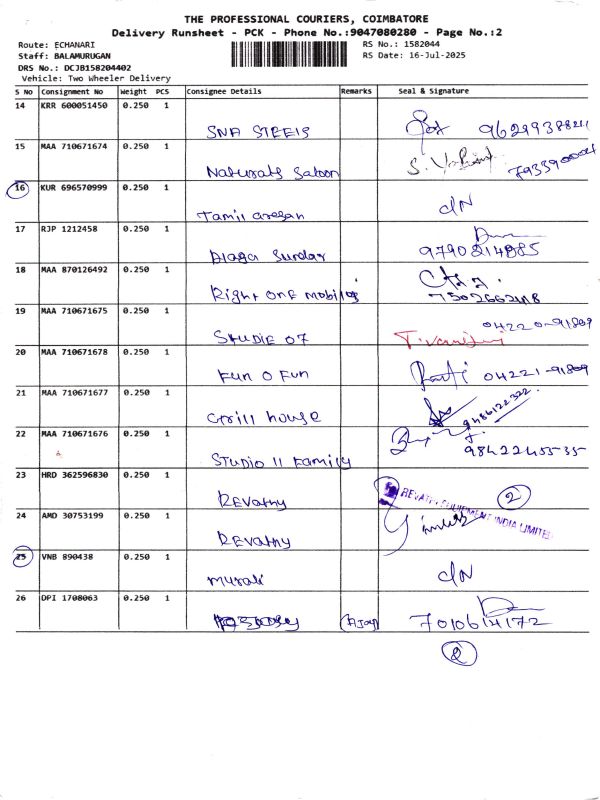 THE PROFESSIONAL COURIERS, COIMBATORE
Delivery Runsheet - PCK - Phone No.:9047080280 - Page No.:2
Route: ECHANARI RS No.: 1582044
Staff: BALAMURUGAN RS Date: 16-Jul-2025
DRS No.: DCJB158204402
Vehicle: Two Wheeler Delivery
S No Consignment No Weight PCS Consignee Details Remarks Seal & Signature
14 KRR 600051450 0.250 1
SNA STEELS
15 MAA 710671674 0.250 1
Naturals Saloon
16 KUR 696570999 0.250 1
Tamil aresan d/N
17 RJP 1212458 0.250 1
Alaga Sundar 9790214885
18 MAA 870126492 0.250 1
Right one mobiles 7502662418
19 MAA 710671675 0.250 1
STUDIE 07 04220-91809
20 MAA 710671678 0.250 1
Fun O Fun 04221-91809
21 MAA 710671677 0.250 1
Grill house 9486122322
22 MAA 710671676 0.250 1
STUDIO 11 Family 9842245535
23 HRD 362596830 0.250 1
REvathy REVATHI EQUIPMENT INDIA LIMITED 2
24 AMD 30753199 0.250 1
REvathy
25 VNB 890438 0.250 1
murali d/N
26 DPI 1708063 0.250 1
7010614172
2